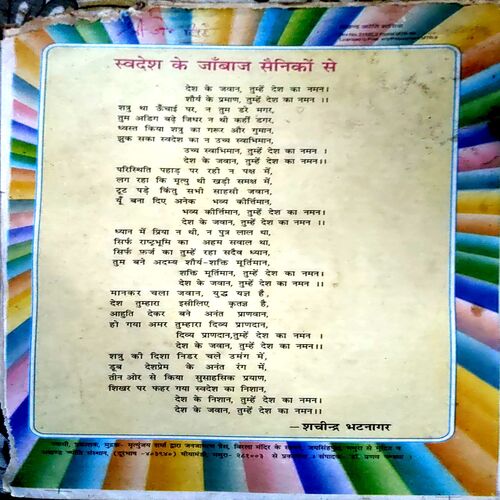 स्वदेश के जाँबाज सैनिकों से
देश के जवान, तुम्हें देश का नमन।
शौर्य के प्रमाण, तुम्हें देश का नमन ।।
शत्रु था ऊँचाई पर, न तुम डरे मगर,
तुम अडिग बढ़े जिधर न थी कहीं डगर,
ध्वस्त किया शत्रु का गरूर और गुमान,
झुक सका स्वदेश का न उच्च स्वाभिमान,
उच्च स्वाभिमान, तुम्हें देश का नमन ।
देश के जवान, तुम्हें देश का नमन।।
परिस्थिति पहाड़ पर रही न पक्ष में,
लग रहा कि मृत्यु थी खड़ी समक्ष में,
टूट पड़े किंतु सभी साहसी जवान,
यूँ बना दिए अनेक भव्य कीर्त्तिमान,
भव्य कीर्त्तिमान, तुम्हें देश का नमन।
देश के जवान, तुम्हें देश का नमन ।।
ध्यान में प्रिया न थी, न पुत्र लाल था,
सिर्फ राष्ट्रभूमि का अहम सवाल था,
सिर्फ फ़र्ज का तुम्हें रहा सदैव ध्यान,
तुम बने अदम्य शौर्य-शक्ति मूर्तिमान,
शक्ति मूर्तिमान, तुम्हें देश का नमन।
देश के जवान, तुम्हें देश का नमन ।।
मानकर चला जवान, युद्ध यज्ञ है,
देश तुम्हारा इसीलिए कृतज्ञ है,
आहुति देकर बने अनंत प्राणवान,
हो गया अमर तुम्हारा दिव्य प्राणदान,
दिव्य प्राणदान,तुम्हें देश का नमन ।
देश के जवान, तुम्हें देश का नमन।।
शत्रु की दिशा निडर चले उमंग में,
डूब देशप्रेम के अनंत रंग में,
तीन ओर से किया सुसाहसिक प्रयाण,
शिखर पर फहर गया स्वदेश का निशान,
देश के निशान, तुम्हें देश का नमन।
देश के जवान, तुम्हें देश का नमन।।
—शचीन्द्र भटनागर
स्वामी, प्रकाशक, मुद्रक- मृत्युंजय शर्मा द्वारा जनजागरण प्रेस, बिरला मंदिर के सामने, जयसिंहपुरा, मथुरा से मुद्रित व
अखण्ड ज्योति संस्थान, (दूरभाष -४०३९४०) घीयामंडी, मथुरा- २८१००३ से प्रकाशित । संपादक- डॉ. प्रणव पण्ड्या ।